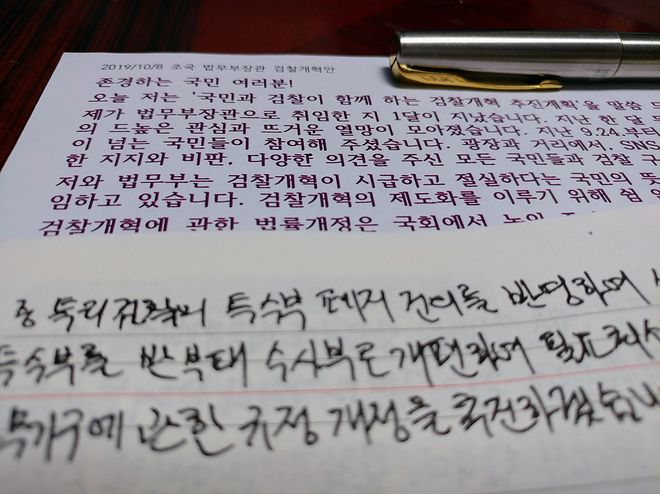 2019/10/8 조국 법무부장관 검찰개혁안
존경하는 국민 여러분!
오늘 저는 '국민과 검찰이 함께 하는 검찰개혁 추진계획'을 말씀 드
제가 법무부장관으로 취임한 지 1달이 지났습니다. 지난 한 달 동
의 드높은 관심과 뜨거운 열망이 모아졌습니다. 지난 9.24.부터
이 넘는 국민들이 참여해 주셨습니다. 광장과 거리에서, SNS
한 지지와 비판, 다양한 의견을 주신 모든 국민들과 검찰 구
저와 법무부는 검찰개혁이 시급하고 절실하다는 국민의 뜻
임하고 있습니다. 검찰개혁의 제도화를 이루기 위해 쉼
검찰개혁에 관한 법률개정은 국회에서
특수부 폐지 건의를 반영하여
특수부를 반부패 수사부로 개편하며
에 관한 규정 개정을 추진하겠습니